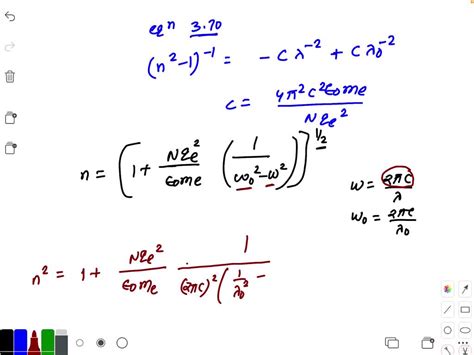 eqⁿ 3.70
(n²-1)⁻¹ = - C λ⁻² + C λ₀⁻²
C = 4π²c²ϵ₀me / Nqe²
n = (1 + Nqe²/ϵ₀me (1/(ω₀²-ω²)))^1/2
ω = 2πc/λ
ω₀ = 2πc/λ₀
n² = 1 + Nqe²/ϵ₀me 1/(2πc)²(1/λ₀² -